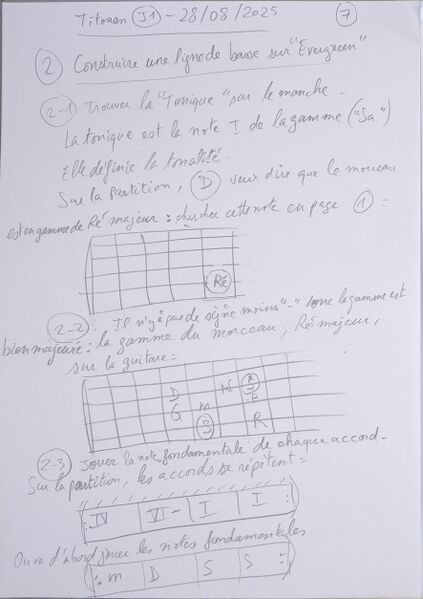 Titouan J1 - 28/08/2025 7
2 Construire une ligne de basse sur "Evergreen"
2-1 Trouver la "Tonique" sur le manche.
La tonique est la note I de la gamme ("Sa")
Elle définie la tonalité.
Sur la partition, D veut dire que le morceau
est en gamme de Ré majeur : chercher cette note en page 1 =
Ré
2-2. Il n'y a pas de signe moins "-" donc la gamme est
bien majeure : la gamme du morceau, Ré majeur,
sur la guitare =
D N S
G m P
S R
2-3 Jouer la note fondamentale de chaque accord.
Sur la partition, les accords se répètent =
IV VI- I I
On va d'abord jouer les notes fondamentales
m D S S